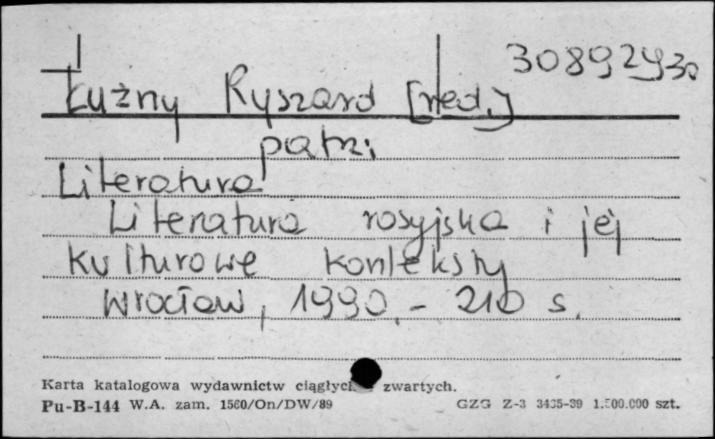 308924 30
Łużny Ryszard [red.]
patrz
Literatura
Literatura rosyjska i jej
kulturowe konteksty
Wrocław, 1990. - 210 s.
Karta katalogowa wydawnictw ciągłych zwartych.
Pu-B-144 W.A. zam. 1560/On/DW/89 GZG Z-3 3435-89 1.500.000 szt.